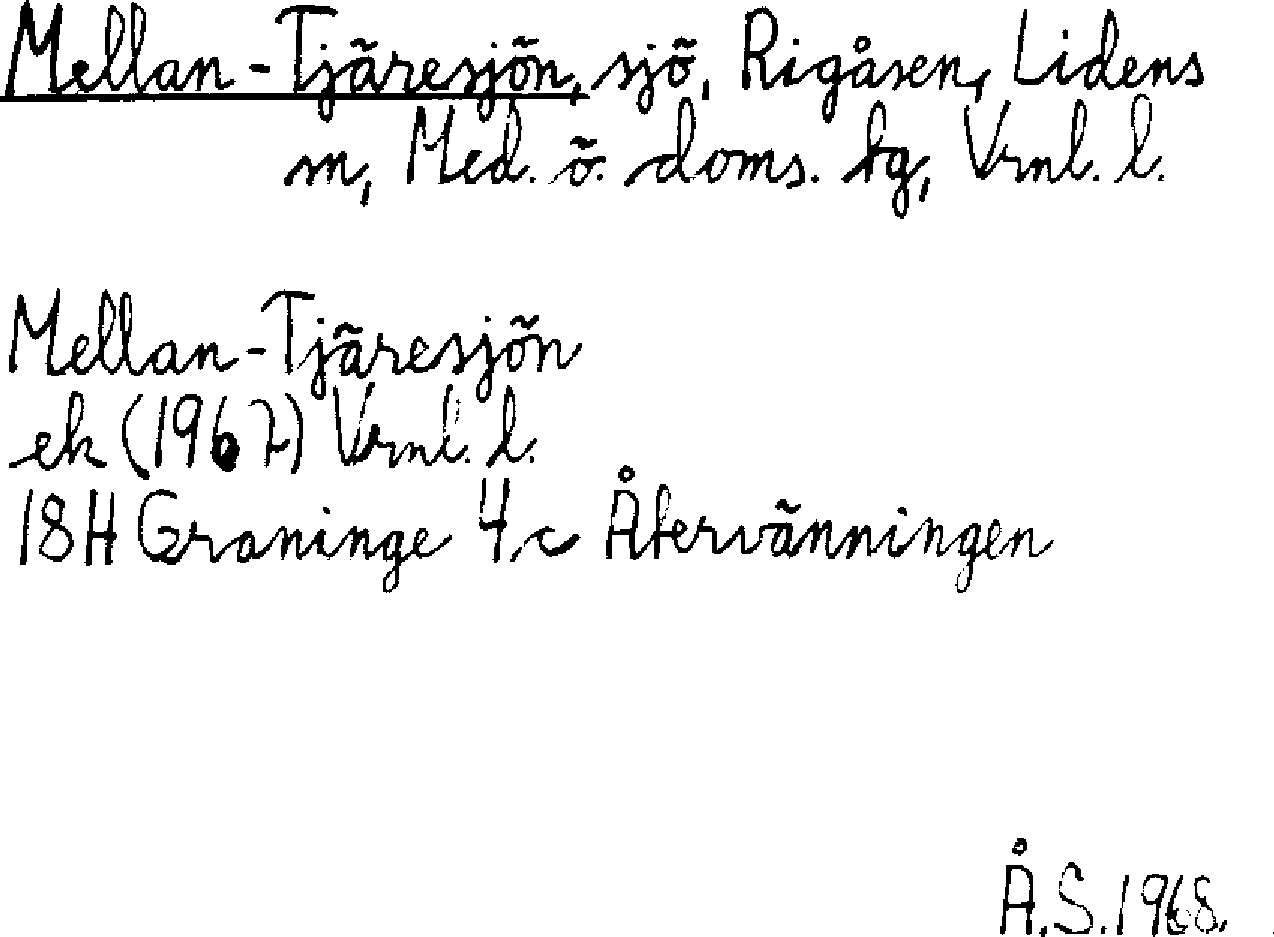 Mellan-Tjäresjön, sjö, Rigåsen, Lidens
sn, Med. ö. doms. tg, Vrnl. l.
Mellan-Tjäresjön
ek (1967) Vrnl. l.
18H Graninge 4c Återvänningen
Å.S. 1968.